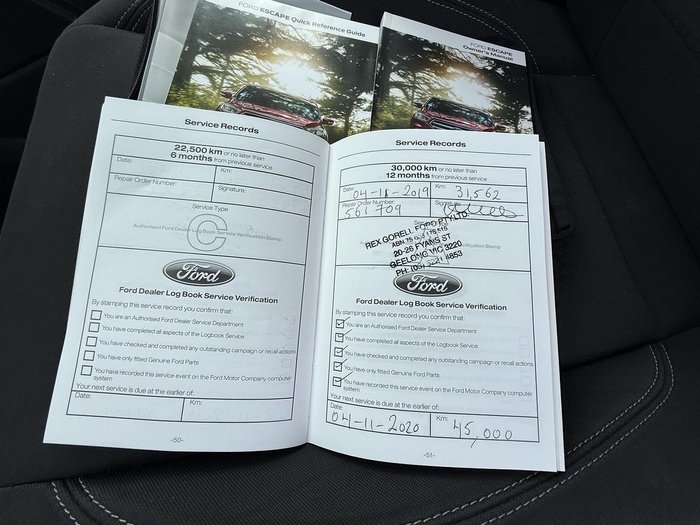 FORD ESCAPE Quick Reference Guide
FORD ESCAPE
Owner's Manual
Service Records
22,500 km or no later than
6 months from previous service
Date:
Km:
Repair Order Number:
Signature:
Service Type
C
Authorised Ford Dealer Log Book Service Verification Stamp
Ford
Ford Dealer Log Book Service Verification
By stamping this service record you confirm that:
You are an Authorised Ford Dealer Service Department
You have completed all aspects of the Logbook Service
You have checked and completed any outstanding campaign or recall actions
You have only fitted Genuine Ford Parts
You have recorded this service event on the Ford Motor Company computer
system
Your next service is due at the earlier of:
Date:
Km:
-50-
Service Records
30,000 km or no later than
12 months from previous service
Date: 04-11-2019
Km: 31,562
Repair Order Number:
Signature:
561709
REX GORELL FORD PTY LTD
ABN
20-26 FYANS ST
GEELONG VIC 3220
Ford
Ford Dealer Log Book Service Verification
By stamping this service record you confirm that:
You are an Authorised Ford Dealer Service Department
You have completed all aspects of the Logbook Service
You have checked and completed any outstanding campaign or recall actions
You have only fitted Genuine Ford Parts
You have recorded this service event on the Ford Motor Company computer
system
Your next service is due at the earlier of:
Date:
Km:
04-11-2020
45,000
-51-